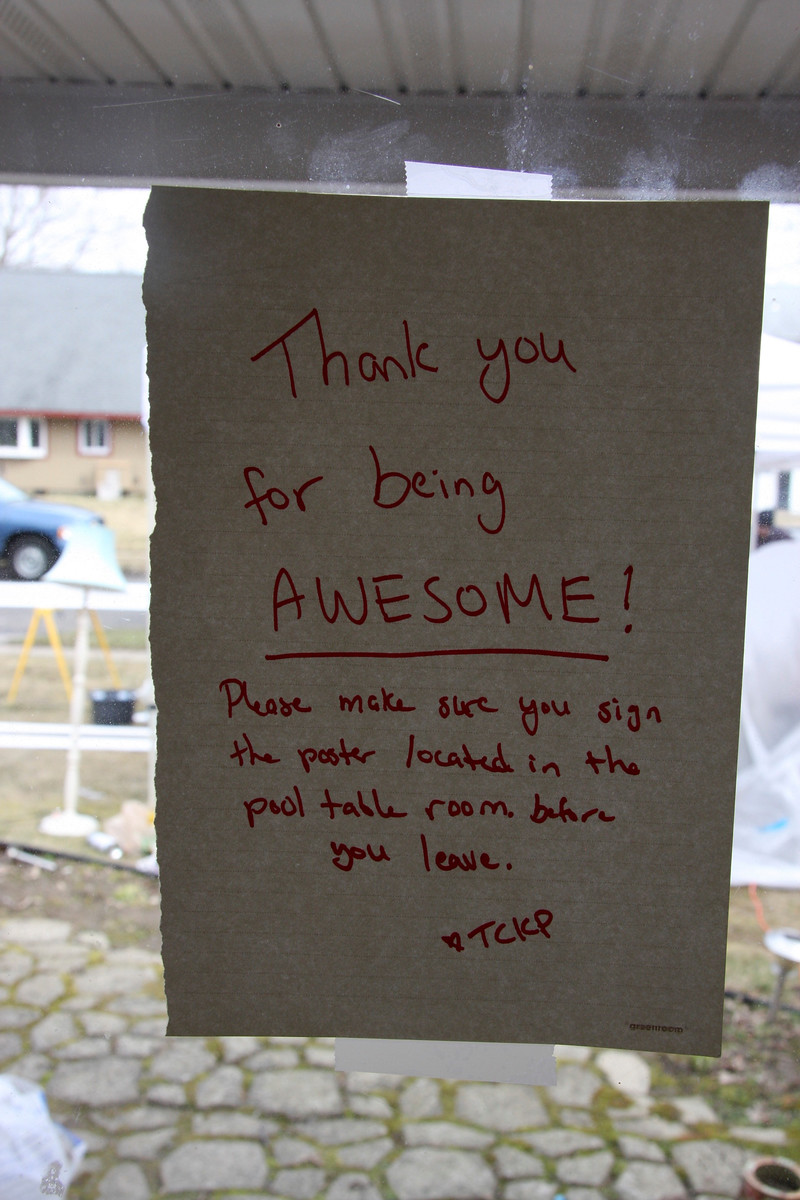 Thank you
for being
AWESOME!
Please make sure you sign
the poster located in the
pool table room. before
you leave.
♥TCKP
greenroom